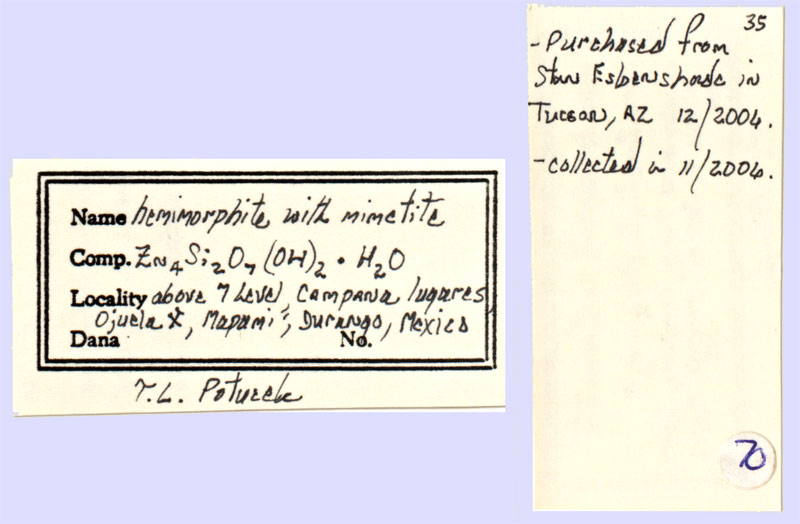 Name hemimorphite with mimetite
Comp. Zn₄Si₂O₇(OH)₂ · H₂O
Locality above 7 Level, Campana lugares,
Ojuela ⚒, Mapami, Durango, Mexico
Dana No.
T.L. Poturek
35
-Purchased from
Stan Esbenshade in
Tucson, AZ 12/2004.
-collected in 11/2004.
70